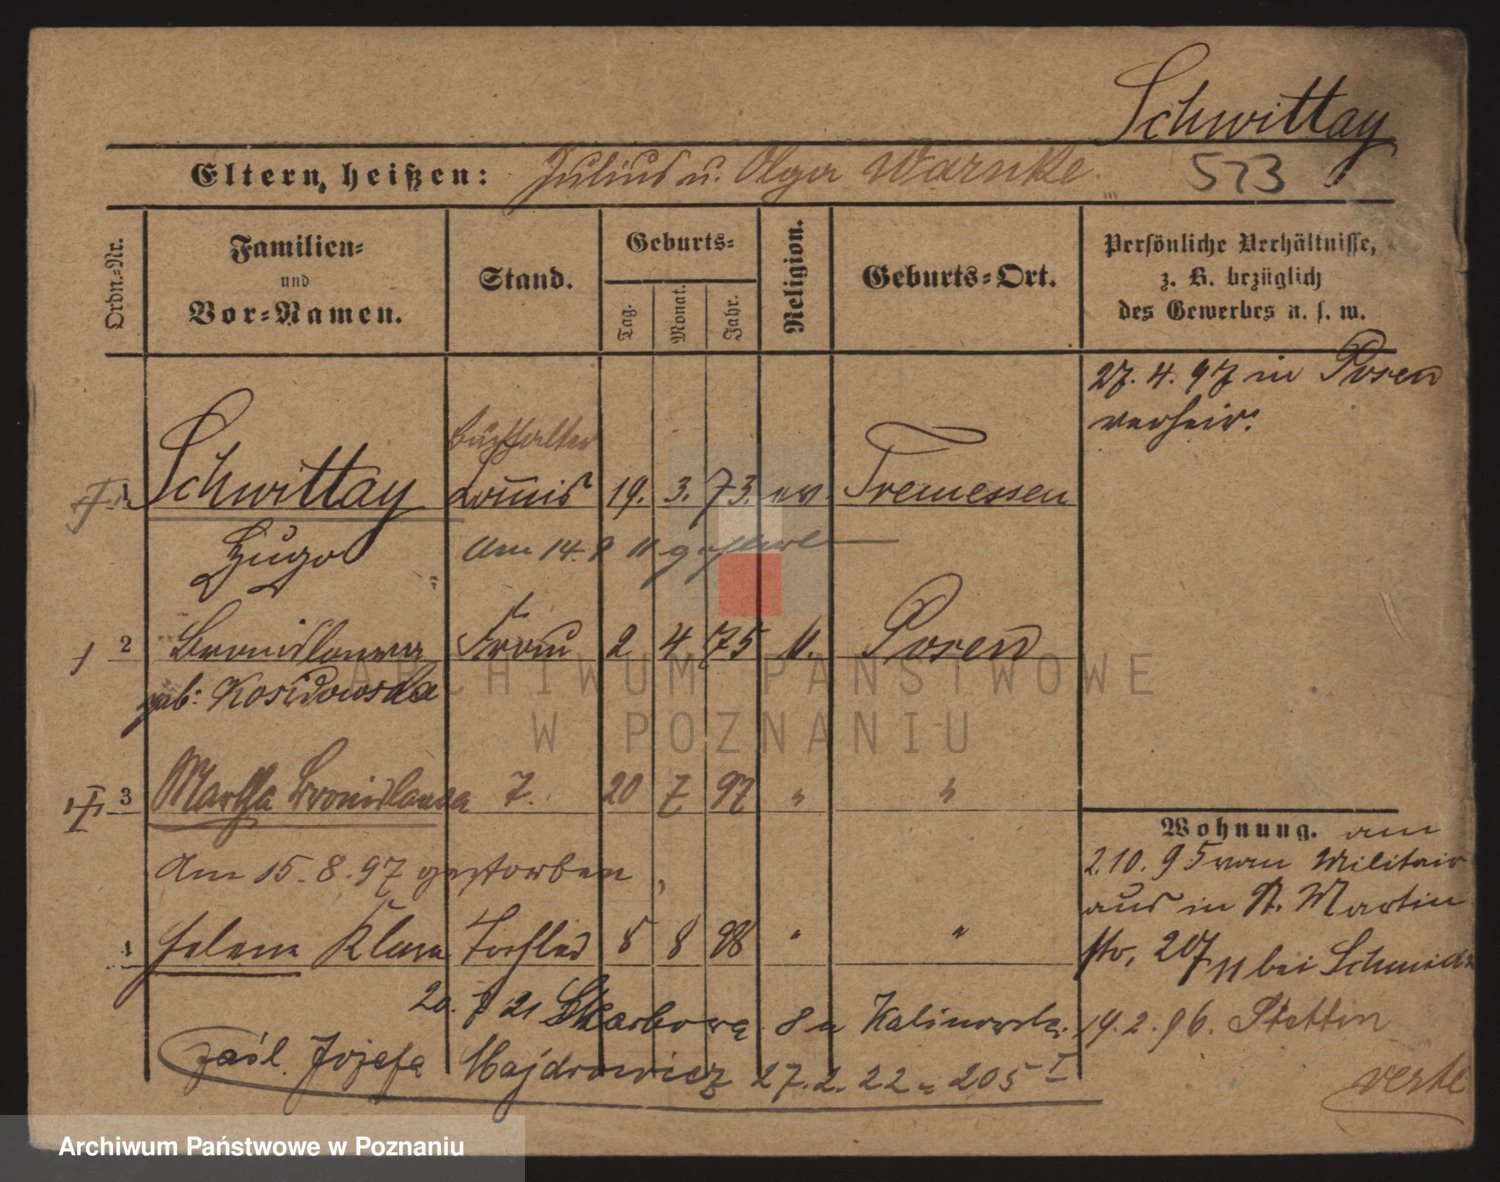 Schwittay
Eltern, heißen: Julius u. Olga Warnke.
573
Ordn.-Nr.
Familien-
und
Vor-Namen.
Stand.
Geburts-
Tag.
Monat.
Jahr.
Religion.
Geburts-Ort.
Persönliche Verhältnisse,
z. B. bezüglich
des Gewerbes u. s. w.
27. 4. 97 in Posen
verheir.
Buchhalter
1 Schwittay Commis 19. 3. 73. ev. Tremessen
Hugo Am 14. 9 11 gestorben
2 Bronislawa Frau 2 4 75 Posen
geb: Kosidowska
3 Martha Bronislawa T. 20 7 97 " "
Am 15. 8. 97 gestorben
Helena Klara Tochter 5 8 98 " "
20. 21 Skarbowa 8 u Kalinowska
zaśl. Józefa Majdrowicz 27. 2. 22 205 I
Wohnung. am
2. 10. 95 vom Militair
aus in St. Martin
str, 207 II bei Schmidt
19. 2. 96. Stettin
verte
ARCHIWUM PAŃSTWOWE
W POZNANIU
Archiwum Państwowe w Poznaniu